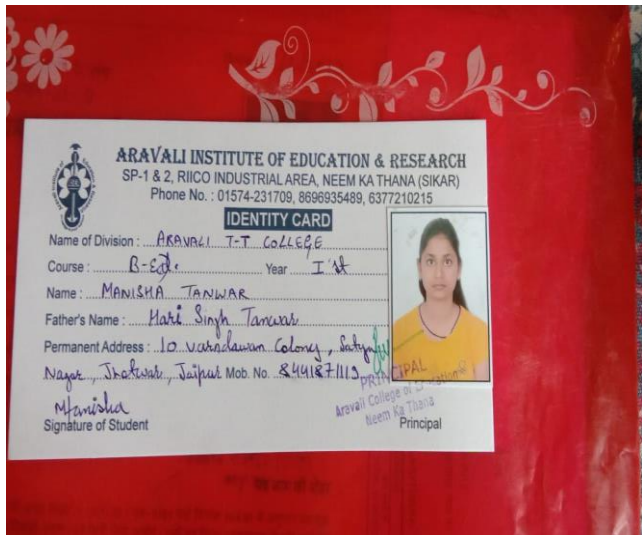 ARAVALI INSTITUTE OF EDUCATION & RESEARCH
SP-1 & 2, RIICO INDUSTRIAL AREA, NEEM KA THANA (SIKAR)
Phone No. : 01574-231709, 8696935489, 6377210215
IDENTITY CARD
Name of Division : ARAVALI T-T COLLEGE
Course : B-Ed. Year I'st
Name : MANISHA TANWAR
Father's Name : Hari Singh Tanwar
Permanent Address : 10 varndawan Colony,
Nagar, Jhotwar, Jaipur Mob. No. 8441871119
PRINCIPAL
Aravali College of Education
Neem Ka Thana
Manisha
Signature of Student Principal